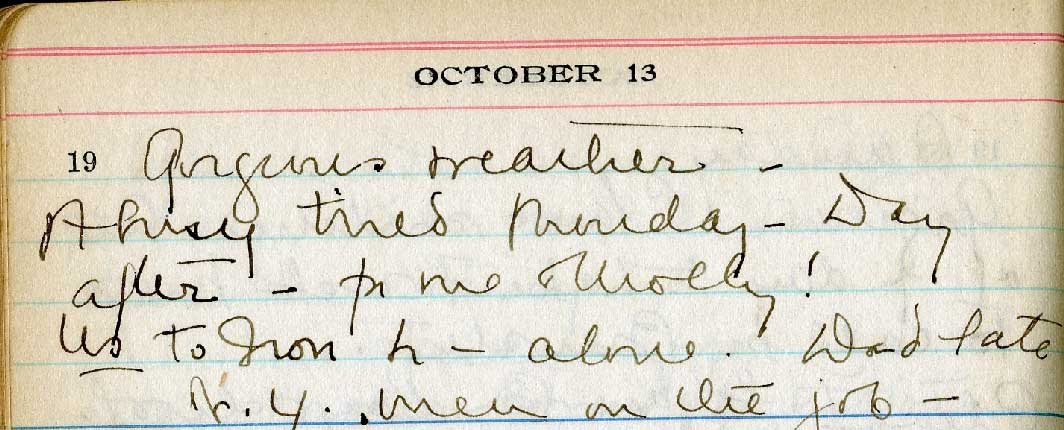 OCTOBER 13
19 Gorgeous weather -
A busy tired Monday - Day
after - for me & Molly!
Us to Iron h - alone. Dad late
N.Y. men on the job -